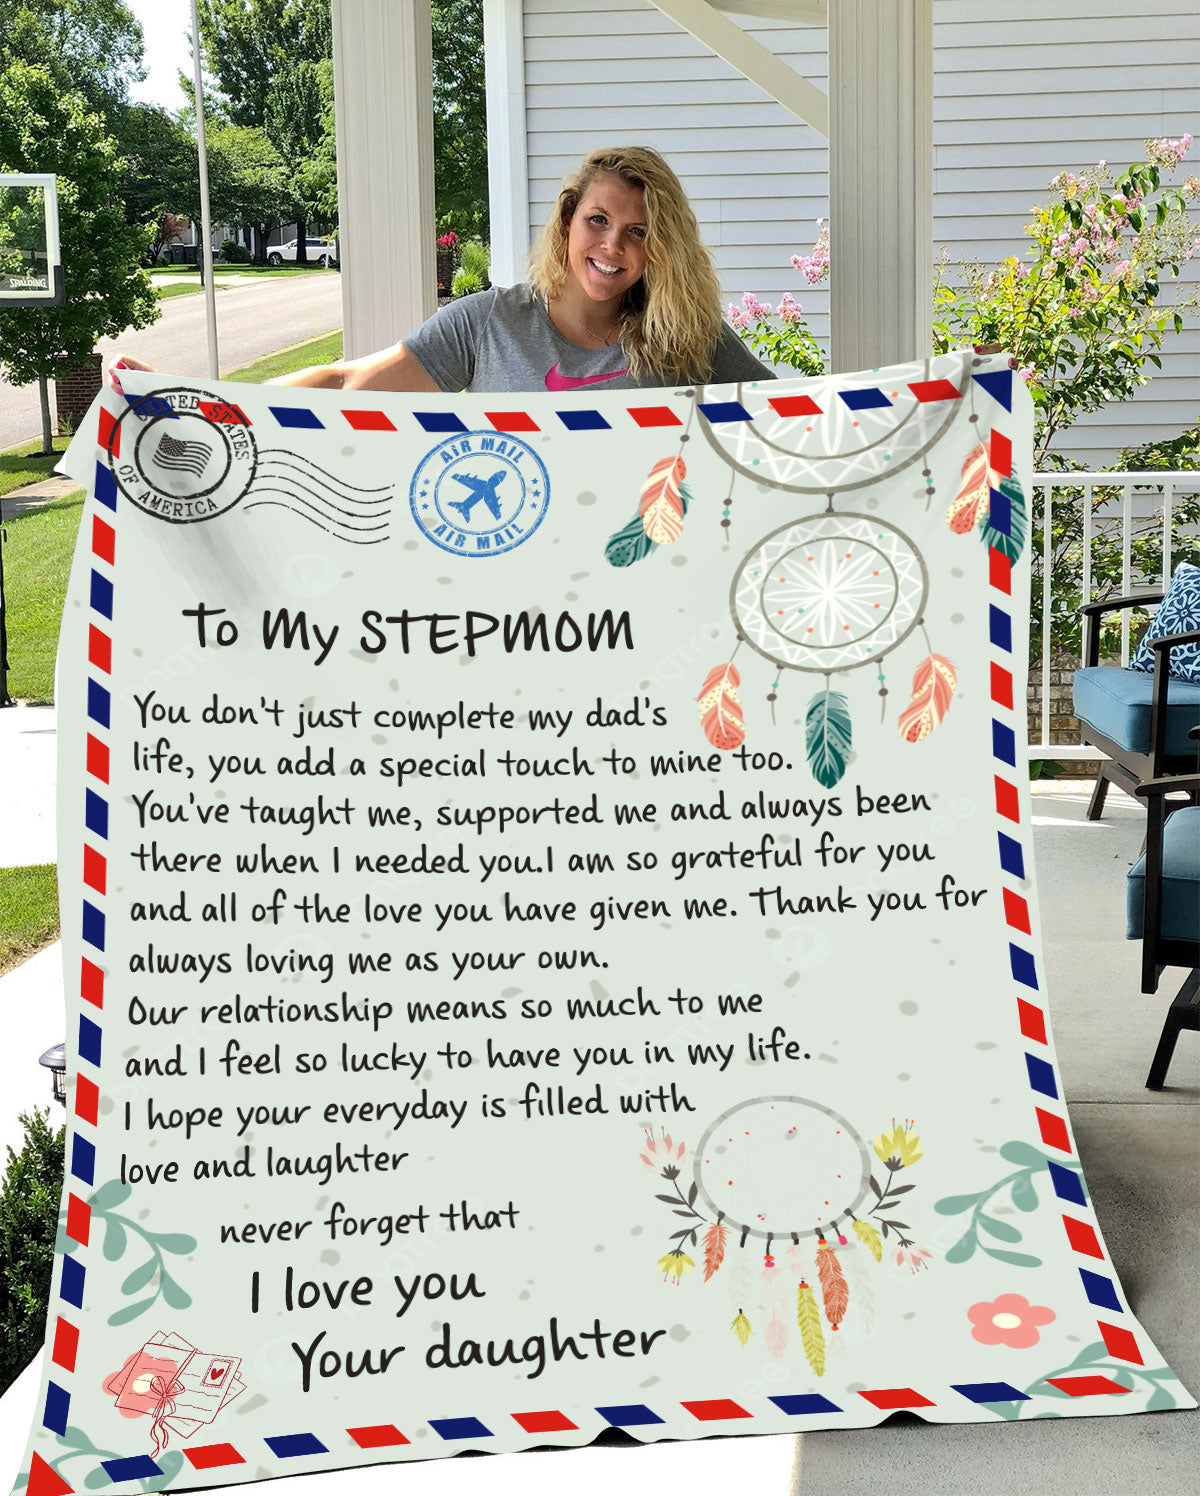 SPALDING
UNITED STATES
OF AMERICA
AIR MAIL
AIR MAIL
To My STEPMOM
You don't just complete my dad's
life, you add a special touch to mine too.
You've taught me, supported me and always been
there when I needed you.I am so grateful for you
and all of the love you have given me. Thank you for
always loving me as your own.
Our relationship means so much to me
and I feel so lucky to have you in my life.
I hope your everyday is filled with
love and laughter
never forget that
I love you
Your daughter